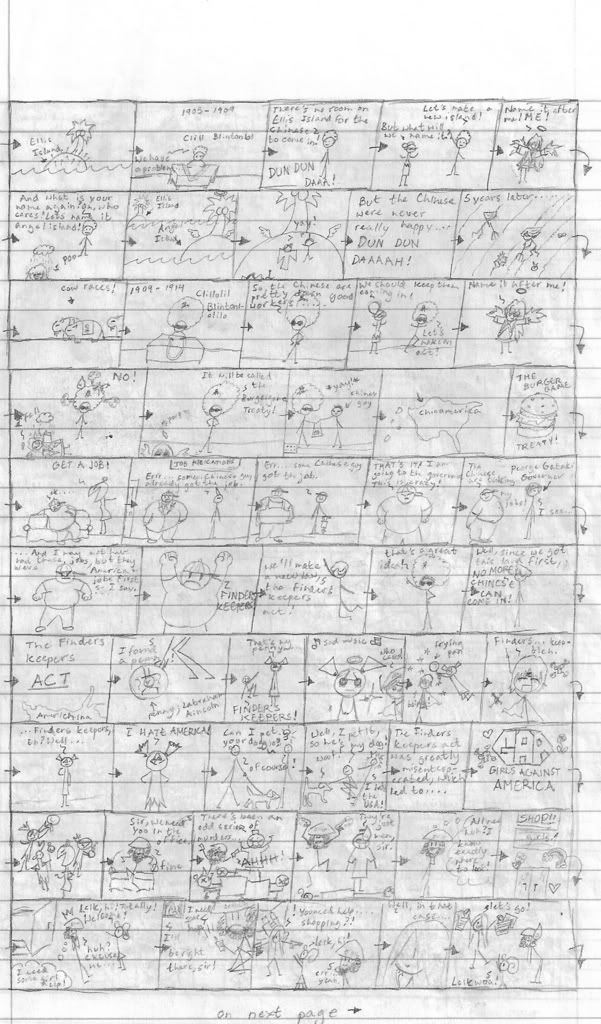 Ellis
Island
1905-1909
Clill Blintonbl
We have
a problem
There's no room on
Ellis Island for the
Chinese 2
to come in!
DUN DUN
DAAA!
Let's make a
new island!
But what will
we name it?
Name it after
me! ME!
And what is your
name again? Oh, who
cares! Let's name it
Angel Island!
POO
Ellis
Island
Angel
Island
yay!
But the Chinese
were never
really happy...
DUN DUN
DAAAAH!
5 years later....
cow races!
1909-1914
Clillolil
Blintonl-
olillo
So, the Chinese are
pretty darn good
workers...
We should keep them
coming in!
Let's
make an
act!
Name it after me!
NO!
It will be called
the
Burgerigne
Treaty!
*yay!*
chinese
guy
chinamerica
THE
BURGER
GAME
TREATY!
GET A JOB!
JOB APPLICATIONS
Err... some Chinese guy
already got the job.
Err....some Chinese guy
got the job.
THAT'S IT! I am
going to the governor
this is crazy!
The
Chinese
are taking
my
jobs!
Peorge Gataki
Governor
I see...
...And I may not have
had these jobs, but they
were
America's
jobs first
I say.
FINDER
KEEPERS
We'll make
a new law,
the Finders
keepers
act!
that's a great
idea!
Well, since we got
this land first,
NO MORE
CHINESE
CAN
COME IN!
The Finders
Keepers
ACT
Amurichina
I found
a penny!
penny; Labraham
Aincoln
That's my
penny...
FINDER'S
KEEPERS!
sad music
who
cares
frying
pan
Finders... kee-
bleh.
...Finders keepers,
eh? Well...
I HATE AMERICA!
Can I pet
your doggie?
of course!
Well, I pet it,
so he's my dog!
wait..
I hate
the
USA!
The Finders
Keepers act
was greatly
misenterp-
orated, which
led to....
GIRLS AGAINST
AMERICA
Sir, we need
you in the
office.
fine
There's been an
odd series of
murders...
AHHH!
They're
just
men,
sir.
huh? I
know
exactly
where
to look!
SHOP!!
girls!
I need
some
help!
Leik, hi! Totally!
Welcome!
huh?
excuse
me...
I need
I'll
be right
there, sir!
You need help...
shopping?!
leik, hi!
err...
yeah.
Well, in that
case...
let's go!
Leik woa!
on next page →